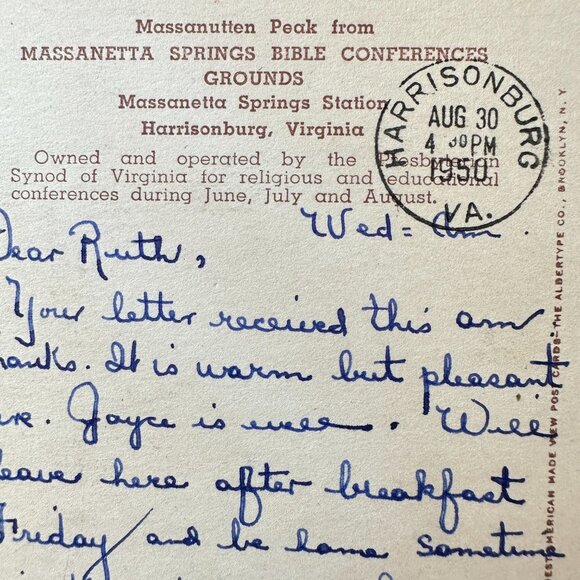 Massanutten Peak from
MASSANETTA SPRINGS BIBLE CONFERENCES
GROUNDS
Massanetta Springs Station
Harrisonburg, Virginia
Owned and operated by the Presbyterian
Synod of Virginia for religious and educational
conferences during June, July and August.
HARRISONBURG
AUG 30
4 30 PM
1950
VA.
Wed = Am.
Dear Ruth,
Your letter received this am
hanks. It is warm but pleasant.
ere. Joyce is well. Will
leave here after breakfast
Friday and be home sometime
EST AMERICAN MADE VIEW POST CARDS—THE ALBERTYPE CO., BROOKLYN, N. Y.